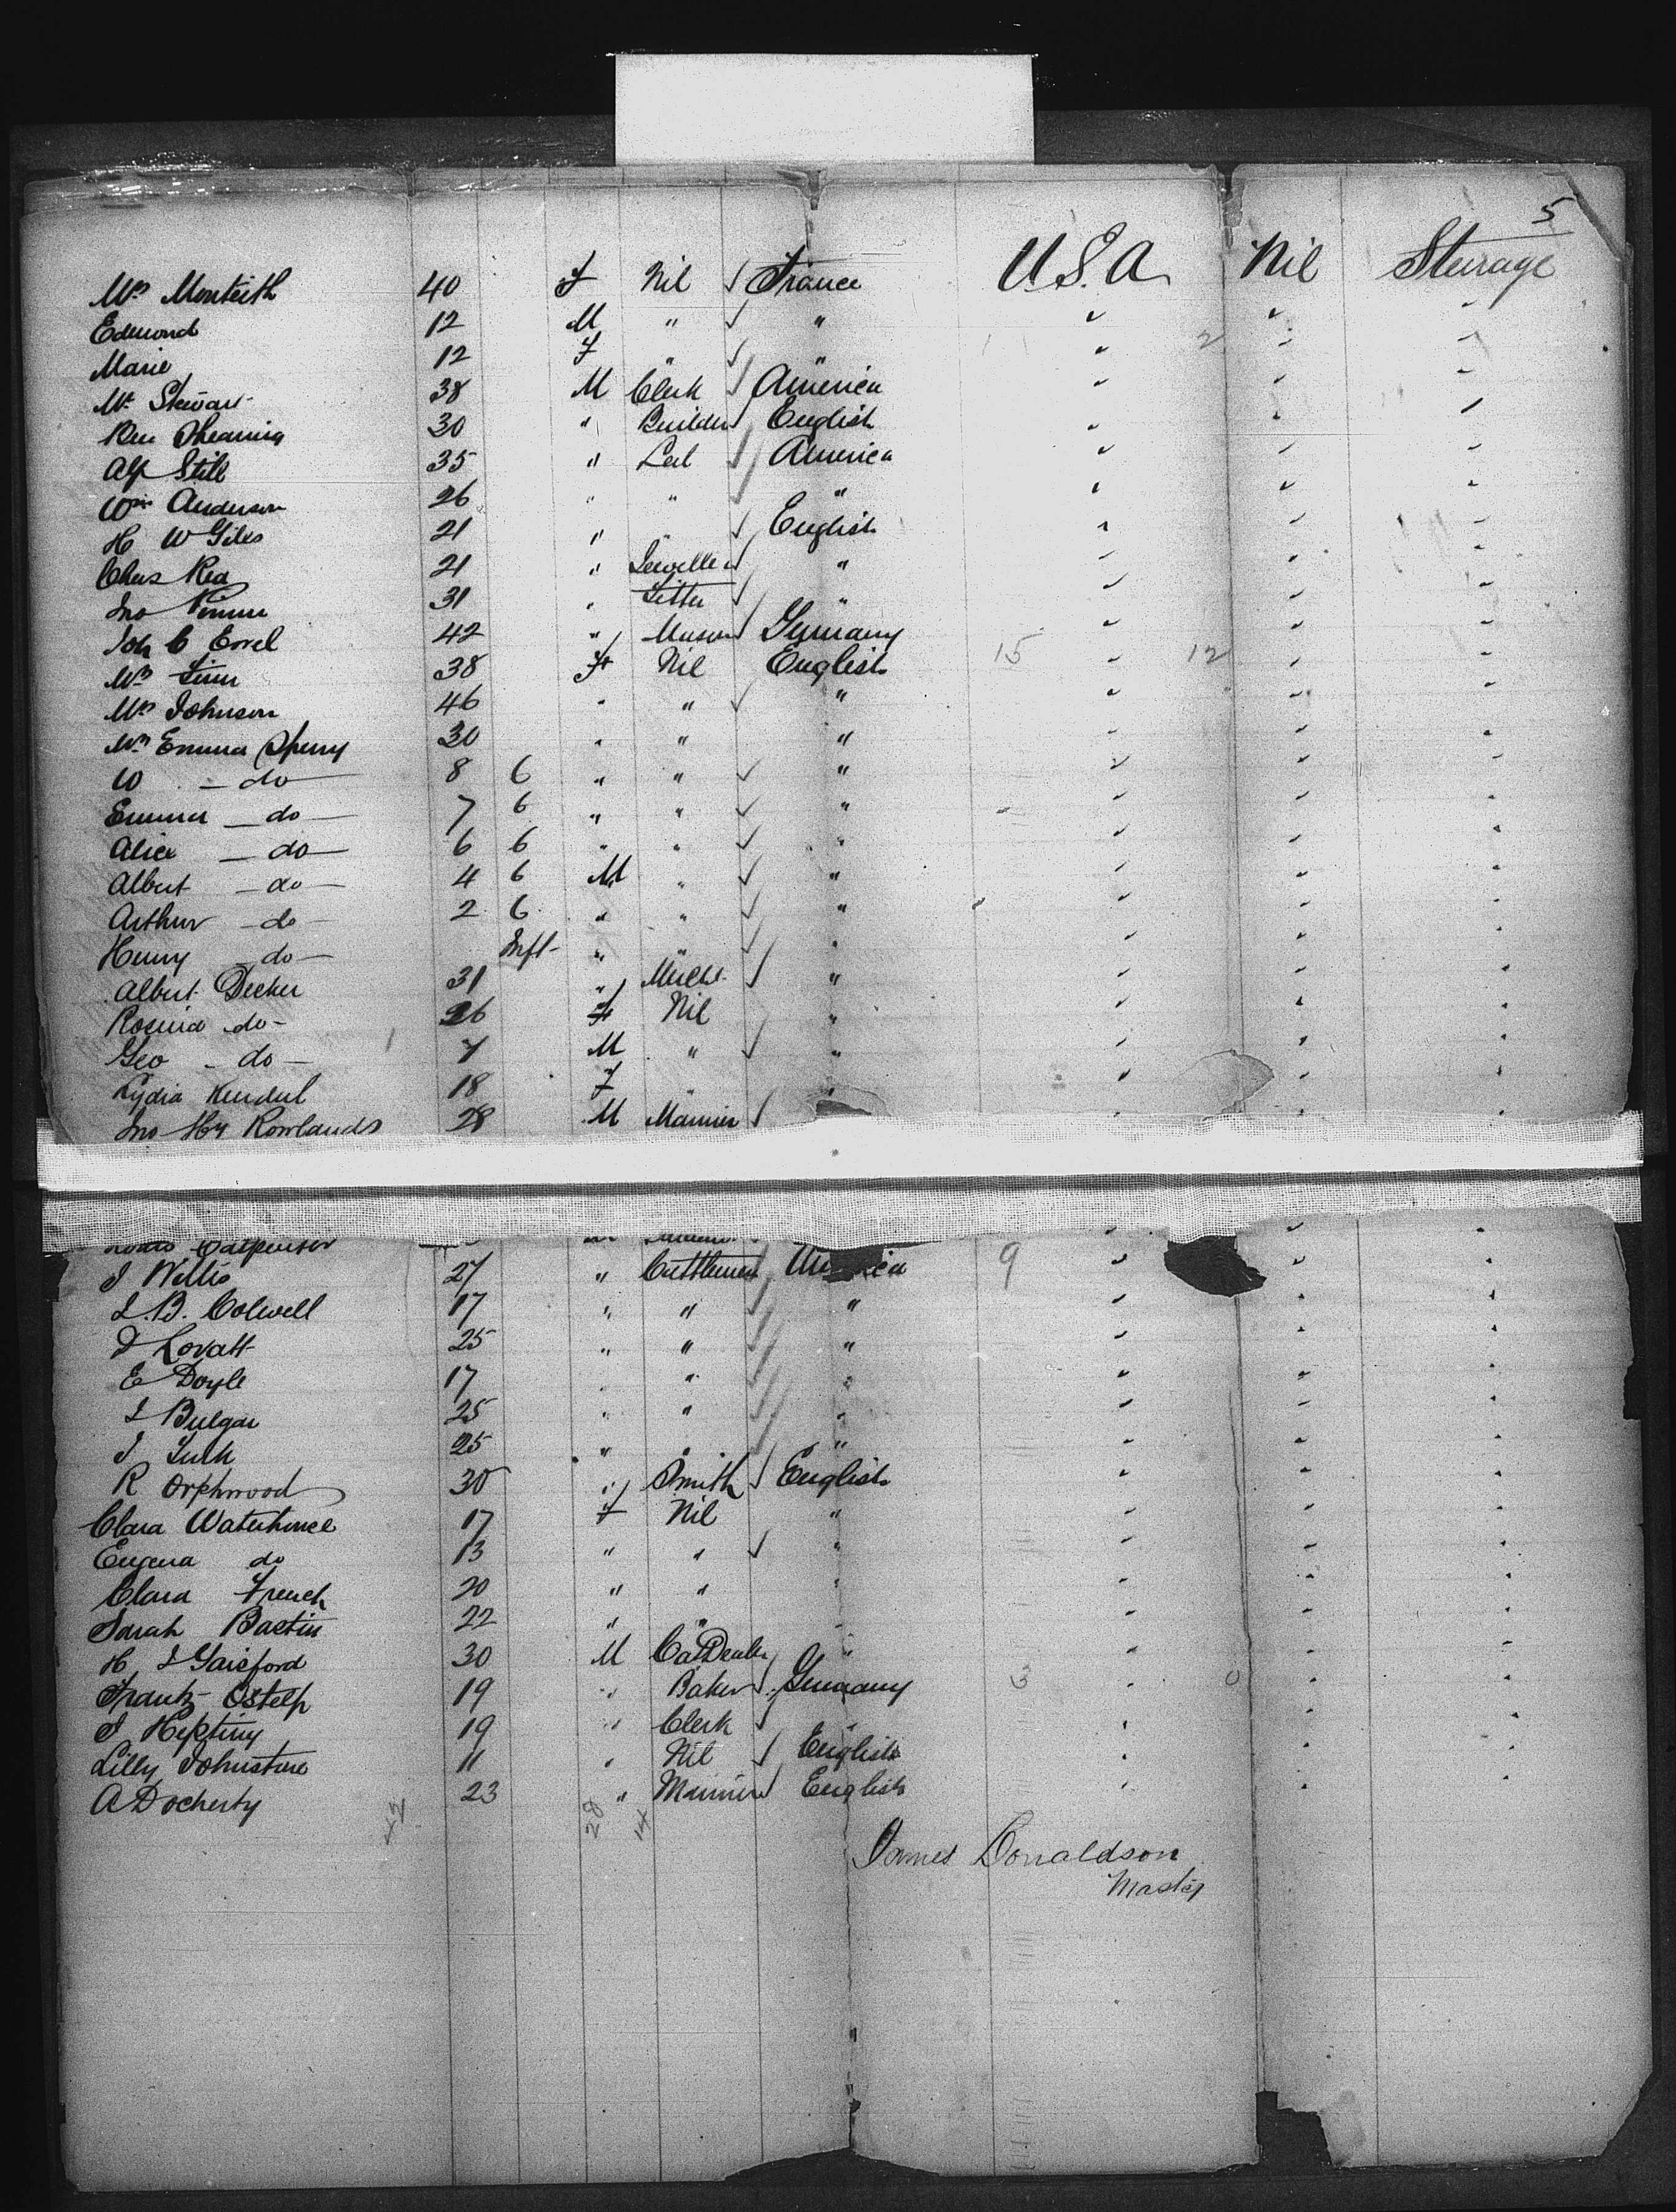 5
Mrs Monteith 40 F Nil France U.S.A Nil Steerage
Edmond 12 M " "
Marie 12 F " "
Mr Stewart 38 M Clerk America
30 " Builder English
Alf Still 35 " America
Wm Anderson 26 " " "
H W Giles 21 " " English
Chas Rea 21 " Jeweller "
Jno 31 " Fitter "
Joh C Errel 42 " Mason Germany 15 12
Mrs 38 F Nil English
Mrs Johnson 46 " " "
Mrs Emma Sperry 30 " " "
W - do - 8 6 " " "
Emma - do - 7 6 " " "
Alice - do - 6 6 " " "
Albert - do - 4 6 M " "
Arthur - do - 2 6 " " "
Henry - do - Inft " " "
Albert Decker 31 " "
Rosina - do - 26 F Nil "
Geo - do - 7 M " "
Lydia Kendal 18 F " "
Jno Hy Rowlands 28 M Mariner
Carpenter
J Willis 27 " Cattleman America 9
L.B. Colwell 17 " " "
J Lovatt 25 " " "
E Doyle 17 " " "
J Bulgar 25 " " "
J 25 " " "
R Orphwood 30 " Smith English
Clara Waterhouse 17 F Nil "
Eugena do 13 " " "
Clara French 20 " "
Sarah Bastin 22 " "
H J Gaisford 30 M "
Frantz Ostelp 19 " Baker Germany 3 0
J Hepting 19 " Clerk "
Lilly Johnstone 11 " Nil English
A Docherty 23 " Mariner English
42 28 14
James Donaldson
Master